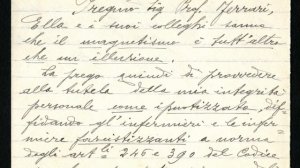 Pregmo Sig. Prof. Ferrari,
Ella e i suoi colleghi sanno
che il magnetismo è tutt'altro
che un'illusione.
La prego quindi di provvedere
alla tutela della mia integrità
personale come ipnotizzata, dif-
fidando gl'infermieri e le infer-
miere fascistizzanti a norma
degli art.li 246 e 390 del Codice